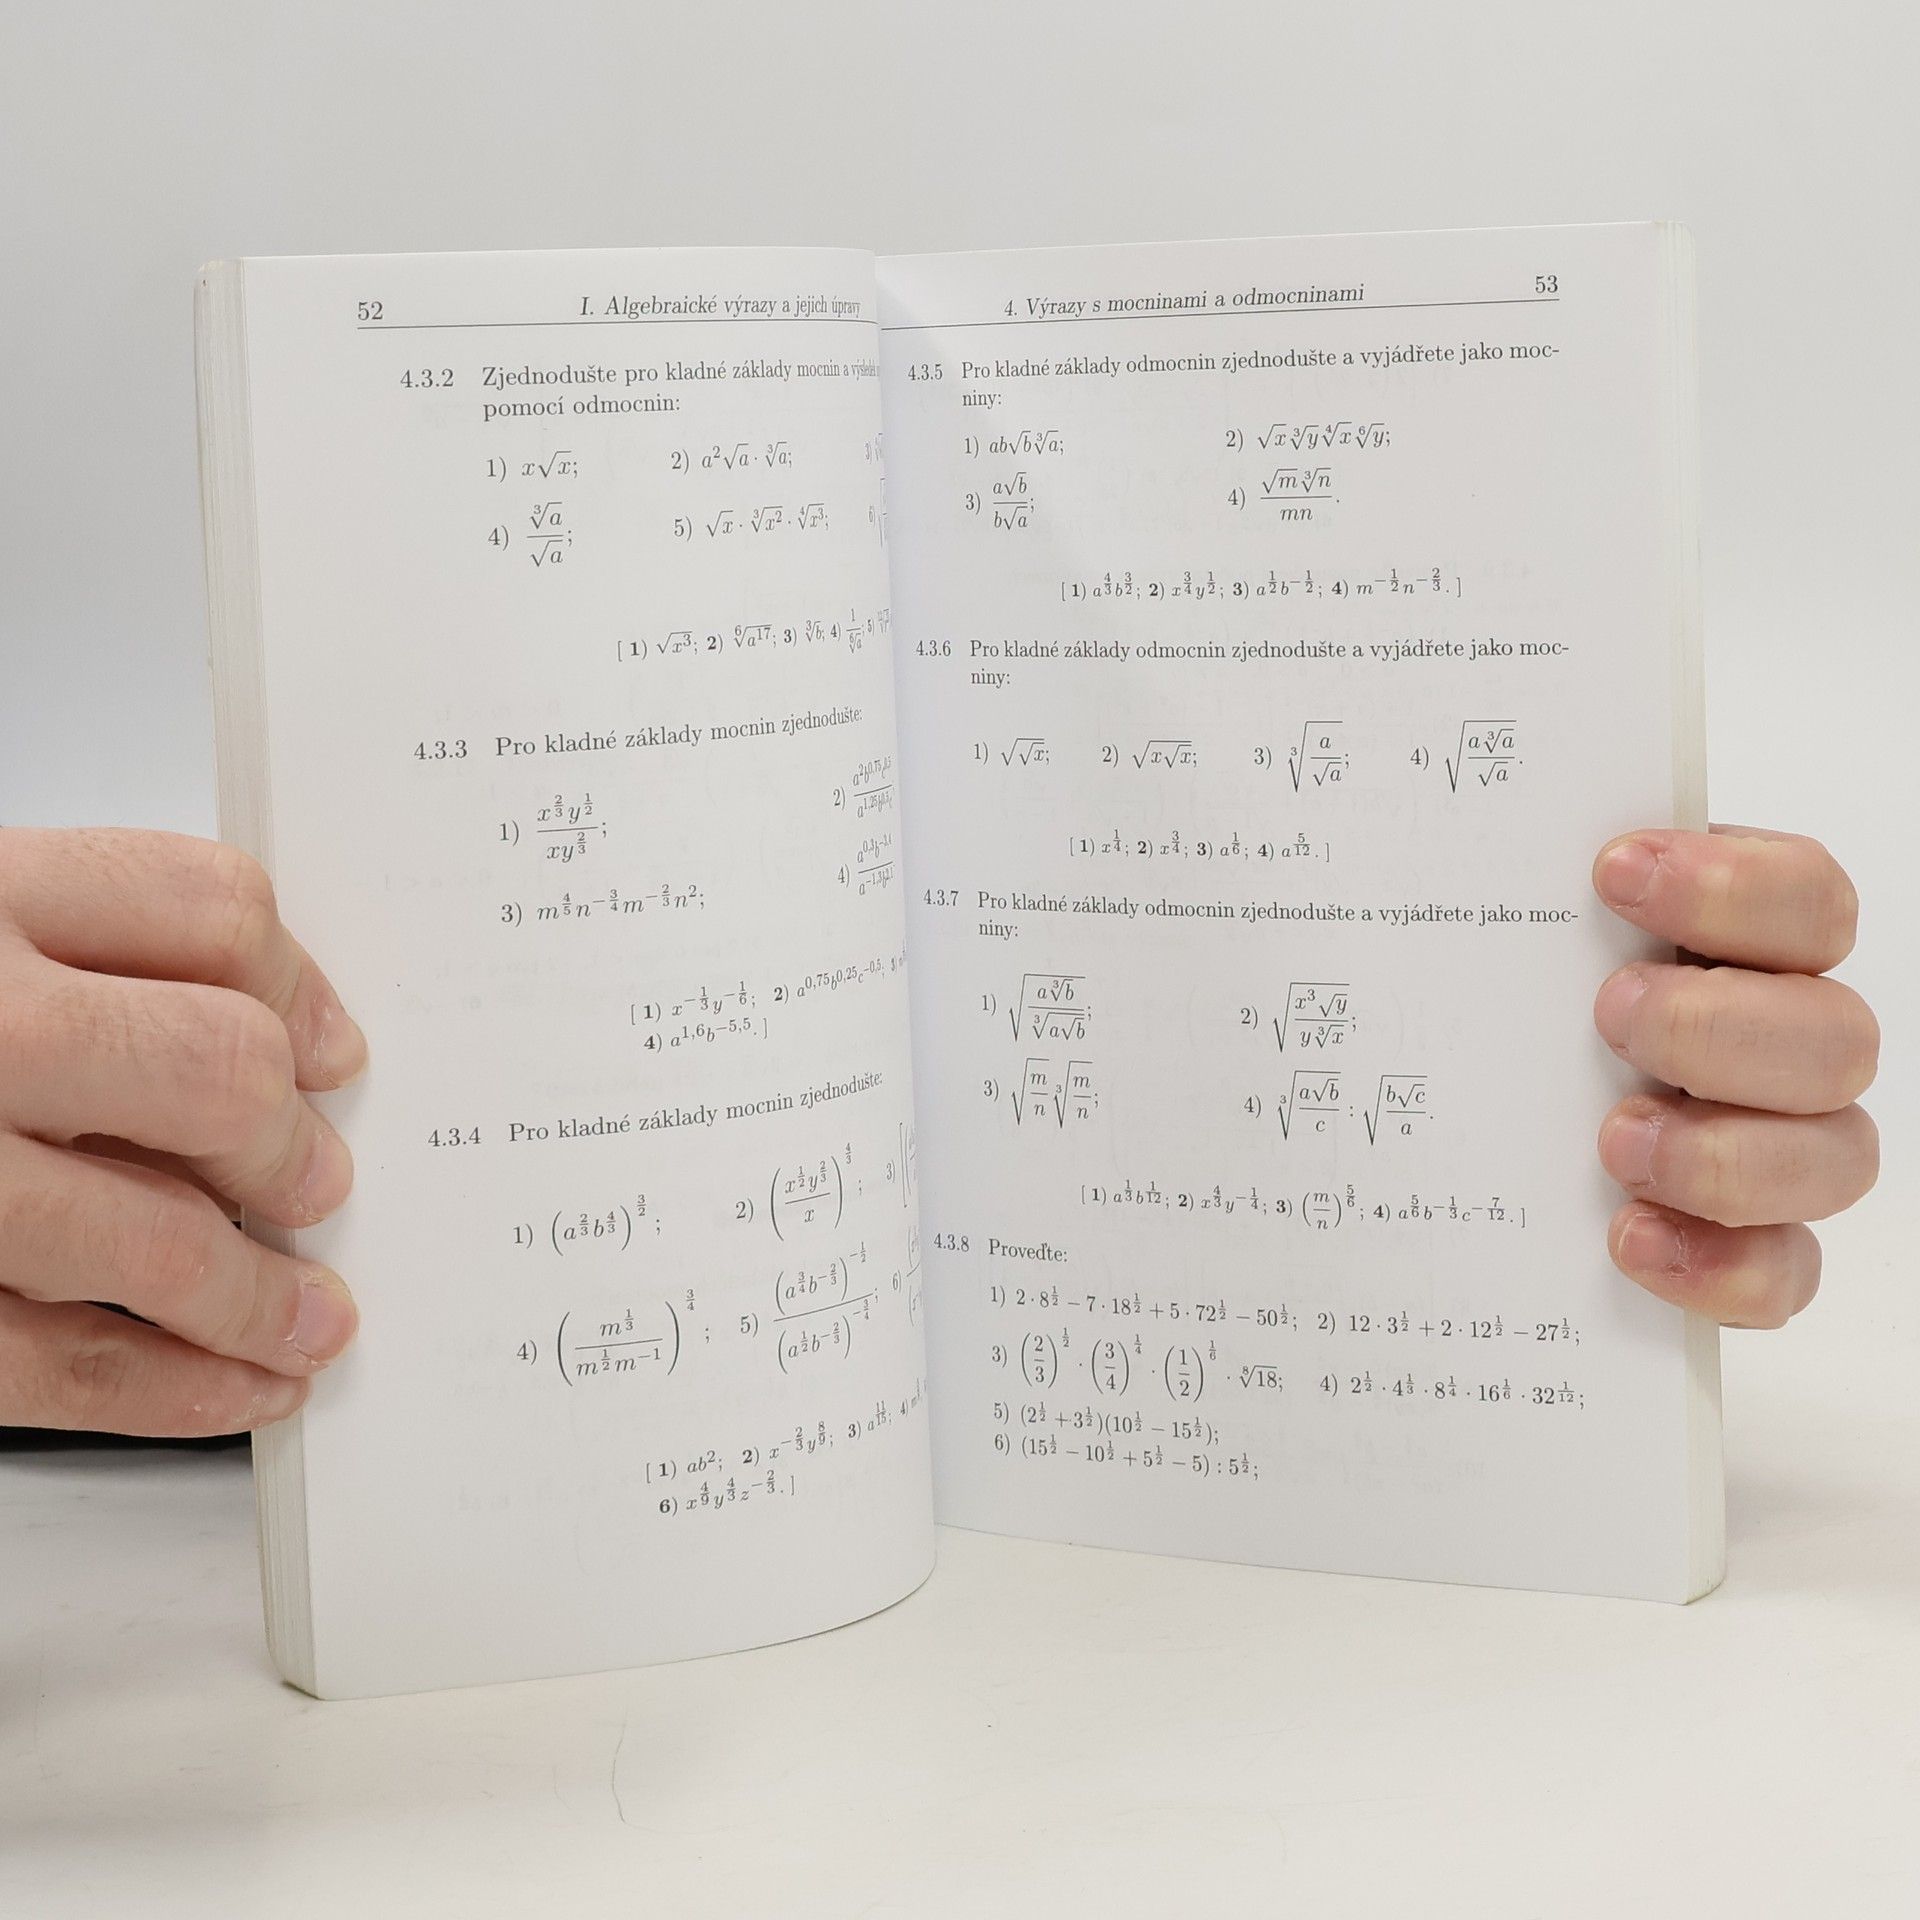 52 I. Algebraické výrazy a jejich úpravy
4.3.2 Zjednodušte pro kladné základy mocnin a
pomocí odmocnin:
1) x√x; 2) a²√a · ∛a; 3)
4) ∛a/√a; 5) √x · ∛x² · ∜x³; 6)
[ 1) √x³; 2) ⁶√a¹⁷; 3) ∛b; 4) 1/⁶√a; 5)
4.3.3 Pro kladné základy mocnin zjednodušte:
1) x^(2/3) y^(1/2) / xy^(2/3); 2)
3) m^(4/5) n^(-3/4) m^(-2/3) n²; 4)
[ 1) x^(-1/3) y^(-1/6); 2) a^(0,75) b^(0,25) c^(-0,5); 3)
4) a^(1,6) b^(-5,5). ]
4.3.4 Pro kladné základy mocnin zjednodušte:
1) (a^(2/3) b^(4/3))^(3/2); 2) (x^(1/2) y^(2/3) / x)^(4/3); 3)
4) (m^(1/3) / m^(1/2) m^(-1))^(3/4); 5) (a^(3/4) b^(-2/3))^(-1/2) / (a^(1/2) b^(-2/3))^(-3/4); 6)
[ 1) ab²; 2) x^(-2/3) y^(8/9); 3) a^(11/15); 4)
6) x^(4/9) y^(4/3) z^(-2/3). ]
4. Výrazy s mocninami a odmocninami 53
4.3.5 Pro kladné základy odmocnin zjednodušte a vyjádřete jako moc-
niny:
1) ab√b∛a; 2) √x∛y∜x⁶√y;
3) a√b / b√a; 4) √m∛n / mn.
[ 1) a^(4/3) b^(3/2); 2) x^(3/4) y^(1/2); 3) a^(1/2) b^(-1/2); 4) m^(-1/2) n^(-2/3). ]
4.3.6 Pro kladné základy odmocnin zjednodušte a vyjádřete jako moc-
niny:
1) √(√x); 2) √(x√x); 3) ∛(a/√a); 4) √(a∛a / √a).
[ 1) x^(1/4); 2) x^(3/4); 3) a^(1/6); 4) a^(5/12). ]
4.3.7 Pro kladné základy odmocnin zjednodušte a vyjádřete jako moc-
niny:
1) √(a∛b / ∛(a√b)); 2) √(x³√y / y∛x);
3) √(m/n) ∛(m/n); 4) ∛(a√b / c) : √(b√c / a).
[ 1) a^(1/3) b^(1/12); 2) x^(4/3) y^(-1/4); 3) (m/n)^(5/6); 4) a^(5/6) b^(-1/3) c^(-7/12). ]
4.3.8 Proveďte:
1) 2 · 8^(1/2) − 7 · 18^(1/2) + 5 · 72^(1/2) − 50^(1/2); 2) 12 · 3^(1/2) + 2 · 12^(1/2) − 27^(1/2);
3) (2/3)^(1/2) · (3/4)^(1/4) · (1/2)^(1/6) · ⁸√18; 4) 2^(1/2) · 4^(1/3) · 8^(1/4) · 16^(1/6) · 32^(1/12);
5) (2^(1/2) + 3^(1/2))(10^(1/2) − 15^(1/2));
6) (15^(1/2) − 10^(1/2) + 5^(1/2) − 5) : 5^(1/2);